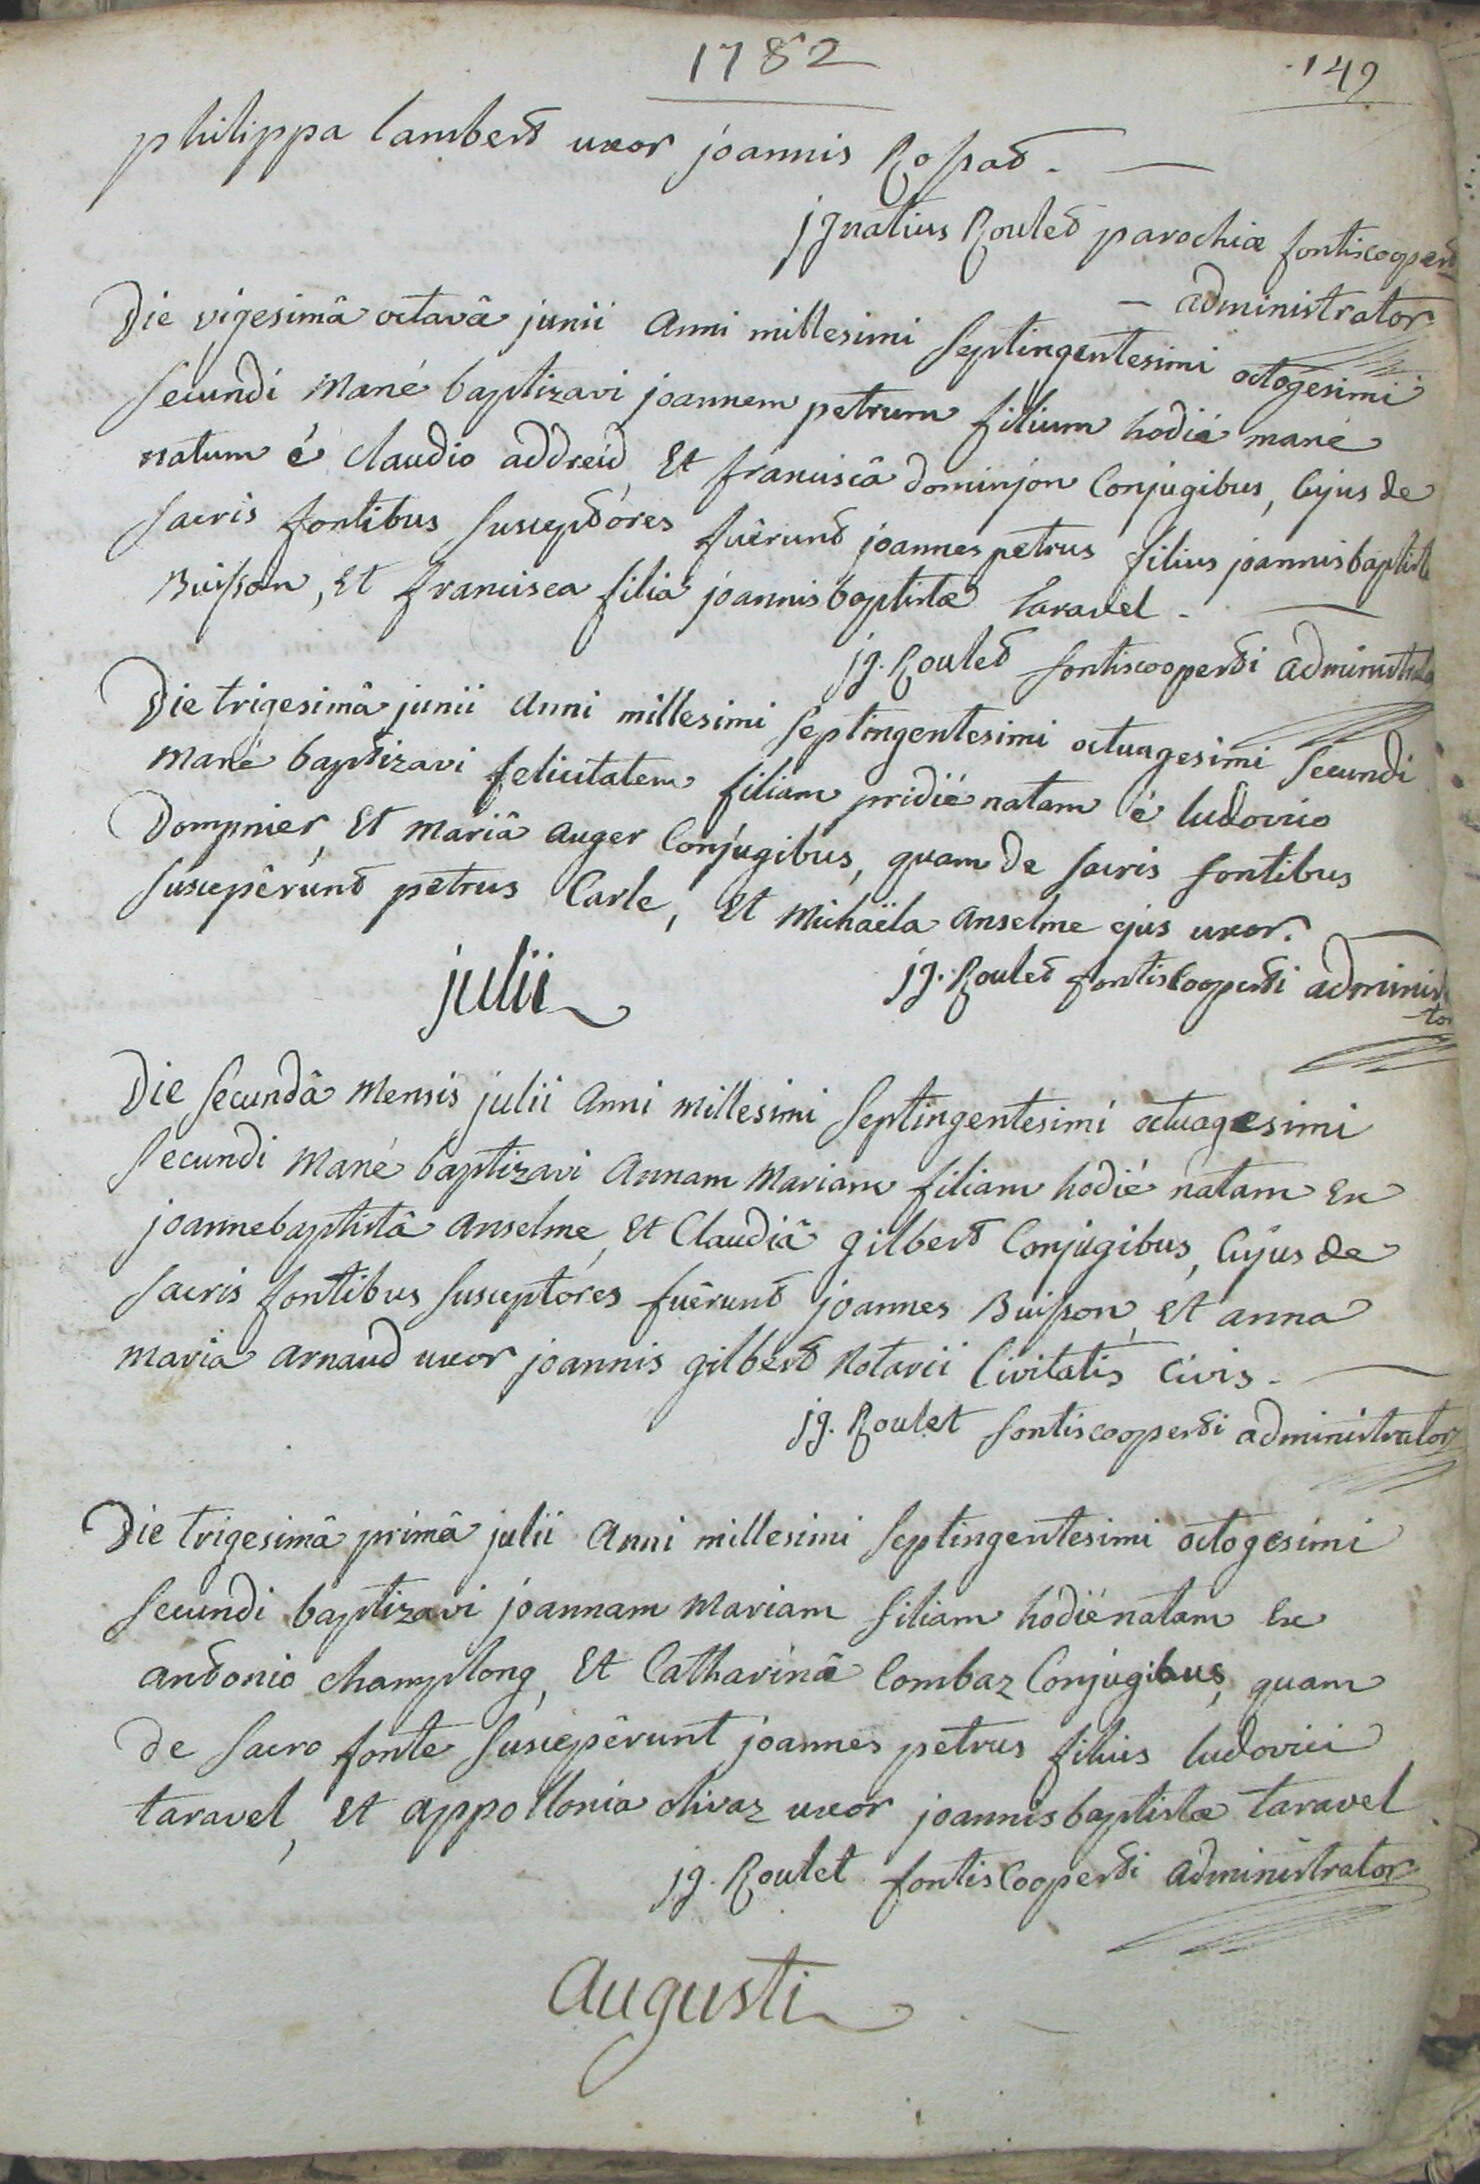 1782
149
philippa lambert uxor joannis Rossat.
jgnatius Roulet parochiæ fontiscoopert
- administrator
Die vigesimâ octavâ junii anni millesimi septingentesimi octogesimi
secundi mané baptizavi joannem petrum filium hodié mané
natum é claudio addreid, Et franciscâ dominjon Conjugibus, Cujus de
sacris fontibus susceptóres fuêrunt joannes petrus filius joannisbaptistæ
Buisson, Et francisca filia joannisbaptistæ taravel.
jg. Roulet fontiscooperti administrator
Die trigesimâ junii anni millesimi septingentesimi octuagesimi secundi
mané baptizavi felicitatem filiam pridié natam é ludovico
Dompnier, Et mariâ auger Conjugibus, quam de sacris fontibus
suscepêrunt petrus Carle, Et Michaëla anselme ejus uxor.
jg. Roulet fontisCooperti administra
-tor
julii
Die secundâ Mensis julii anni millesimi septingentesimi octuagesimi
secundi Mané baptizavi annam Mariam filiam hodié natam Ex
joannebaptistâ anselme, Et Claudiâ gilbert Conjugibus, Cujus de
sacris fontibus susceptóres fuêrunt joannes Buisson, Et anna
maria arnaud uxor joannis gilbert Notarii Civitatis Civis.
jg. Roulet fontiscooperti administrator
Die trigesimâ primâ julii anni millesimi septingentesimi octogesimi
secundi baptizavi joannam Mariam filiam hodié natam Ex
antonio champlong, Et Catharinâ Combaz Conjugibus, quam
de sacro fonte suscepêrunt joannes petrus filius ludovici
taravel, Et appollonia chivaz uxor joannisbaptistæ taravel
jg. Roulet fontisCooperti administrator
augusti